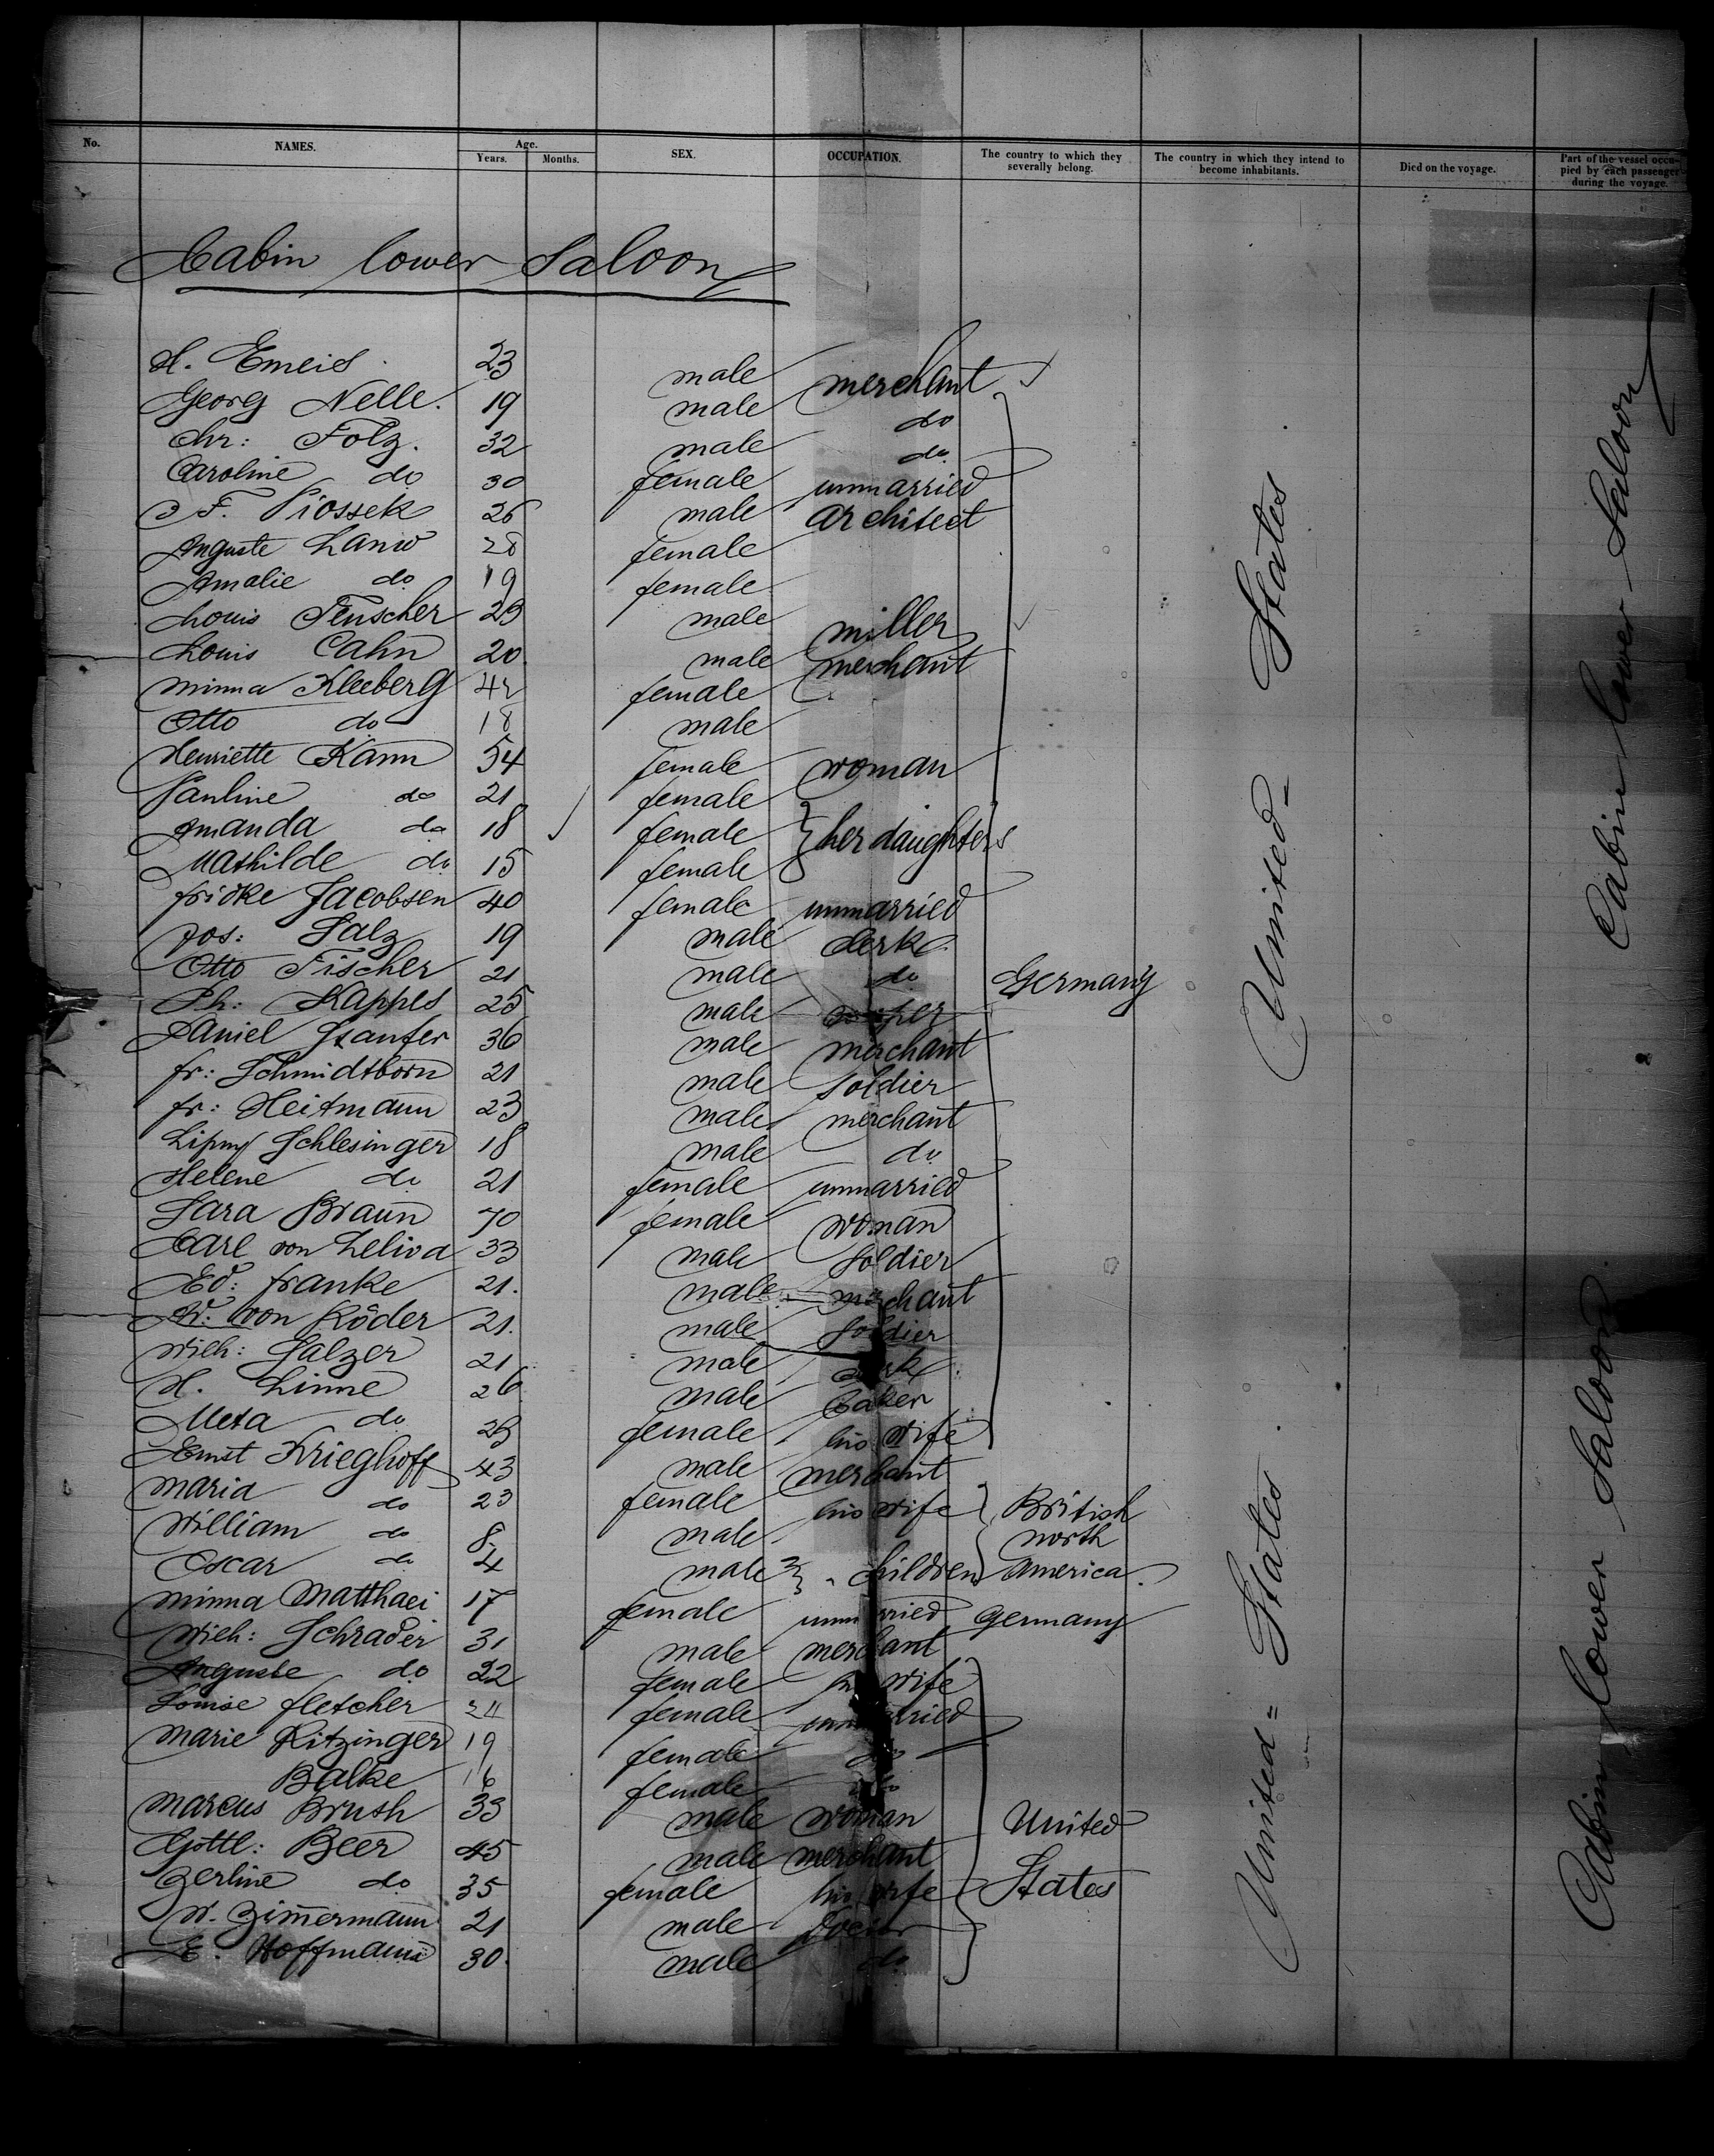 No. NAMES. Age. Years. Months. SEX. OCCUPATION. The country to which they severally belong. The country in which they intend to become inhabitants. Died on the voyage. Part of the vessel occupied by each passenger during the voyage.
Cabin lower Saloon
H. Emeis 23 male merchant
Georg Nelle. 19 male do
Chr: Folz. 32 male do
Caroline do 30 female unmarried
F. Piossek 26 male architect
Auguste Lanw 28 female
Amalie do 19 female
Louis Teuscher 23 male miller
Louis Cahn 20 male merchant
Minna Kleeberg 42 female
Otto do 18 male
Henriette Kann 54 female woman
Pauline do 21 female
Amanda do 18 female } her daughters
Mathilde do 15 female
fridke Jacobsen 40 female unmarried
Jos: Salz 19 male clerk
Otto Fischer 21 male do Germany
Ph: Kappes 25 male
Daniel 36 male merchant
fr: Schmidtborn 21 male soldier
fr: Heitmann 23 male merchant
Schlesinger 18 male do
Helene do 21 female unmarried
Sara Braun 70 female woman
Carl von Leliva 33 male soldier
Ed: franke 21. male merchant
W: von Röder 21. male soldier
Wilh: Salzer 21 male clerk
H. Linne 26 male baker
Meta do 23 female his wife
Ernst Krieghoff 43 male merchant
Maria do 23 female his wife } British
William do 8 male north
Oscar do 4 male } children America.
Minna Matthaei 17 female unmarried Germany
Wilh: Schrader 31 male merchant
Auguste do 22 female his wife
Louise fletcher 24 female unmarried
Marie Kitzinger 19 female do
Balke 16 female do
Marcus Brush 33 male woman United
Gottl: Beer 45 male merchant
Zerline do 35 female his wife States
W. Zimmermann 21 male doctor
E. Hoffmann 30. male do
United States
United States
Cabin lower Saloon
Cabin lower Saloon